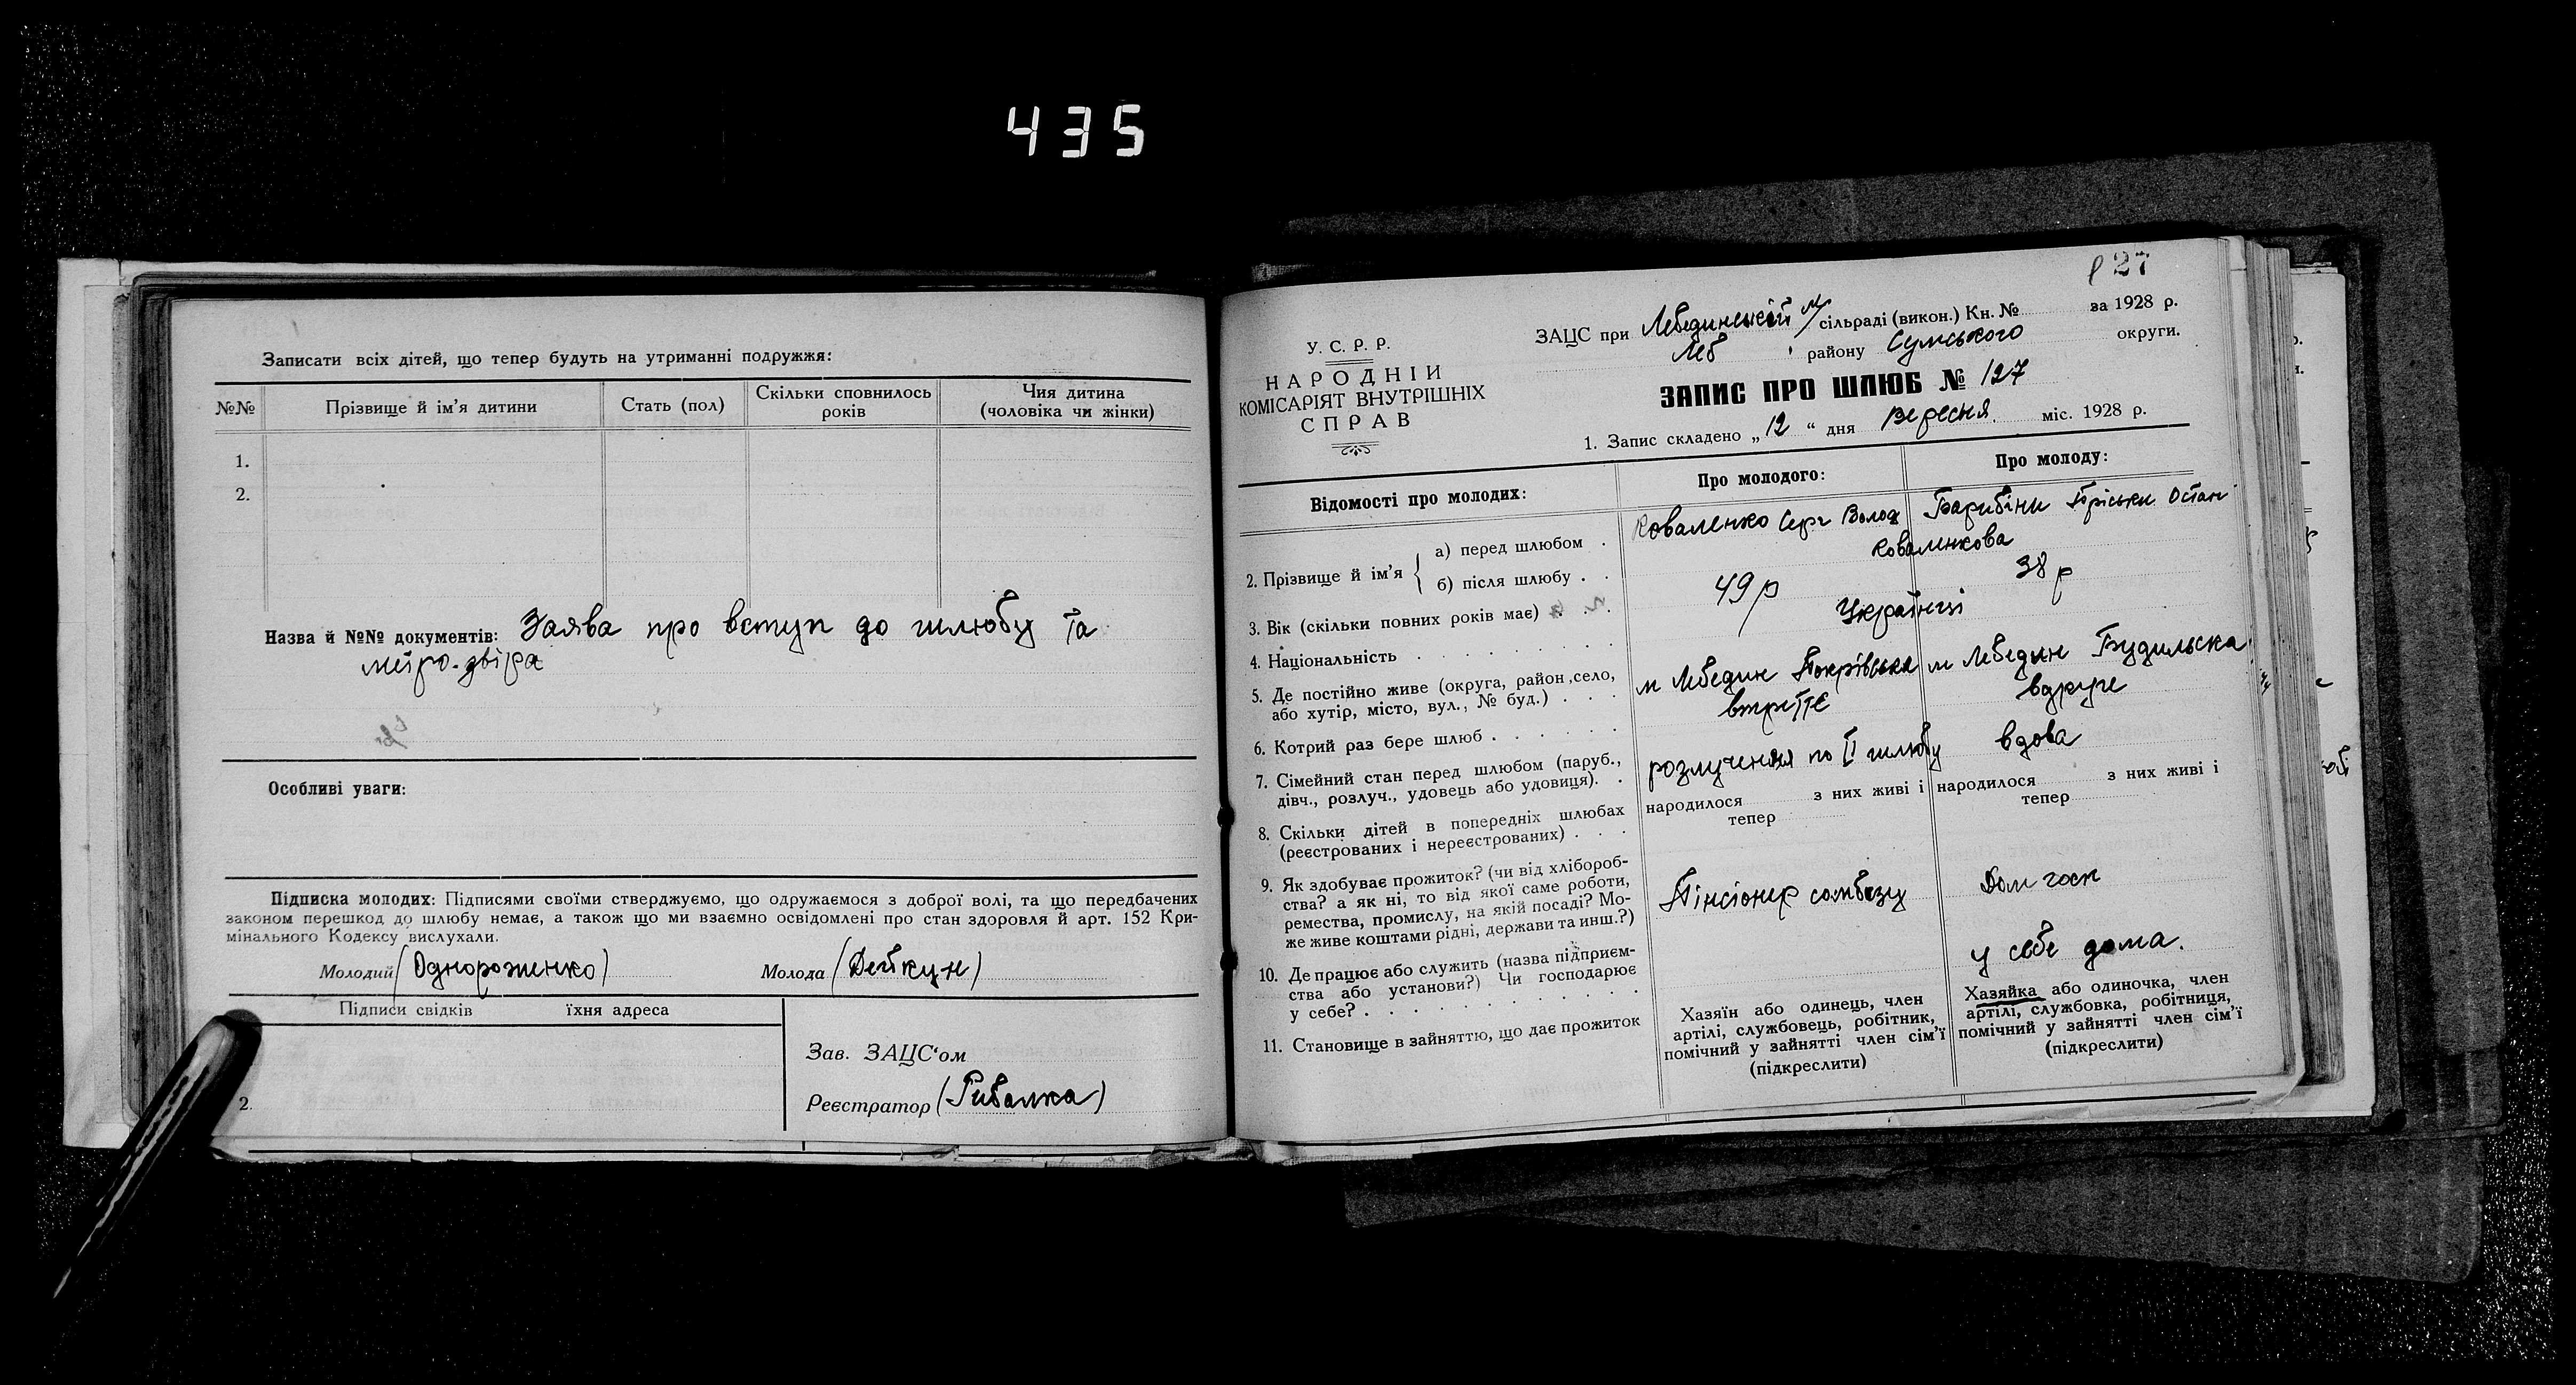 435
Записати всіх дітей, що тепер будуть на утриманні подружжя:
№№ Прізвище й ім'я дитини Стать (пол) Скільки сповнилось років Чия дитина (чоловіка чи жінки)
1.
2.
Назва й №№ документів: Заява про вступ до шлюбу та
Особливі уваги:
Підписка молодих: Підписями своїми стверджуємо, що одружаємося з доброї волі, та що передбачених
законом перешкод до шлюбу немає, а також що ми взаємно освідомлені про стан здоровля й арт. 152 Кри-
мінального Кодексу вислухали.
Молодий (Однороженко) Молода (Дейкун)
Підписи свідків їхня адреса
2.
Зав. ЗАЦС'ом
Реєстратор (Рибалка)
27
У. С. Р. Р.
НАРОДНІЙ
КОМІСАРІЯТ ВНУТРІШНІХ
СПРАВ
ЗАЦС при Лебединській м/сільраді (викон.) Кн. № за 1928 р.
Леб району Сумського округи.
ЗАПИС ПРО ШЛЮБ № 127
1. Запис складено „12“ дня Вересня міс. 1928 р.
Відомості про молодих: Про молодого: Про молоду:
2. Прізвище й ім'я { а) перед шлюбом . Коваленко Серг Волод
б) після шлюбу . . Коваленкова
3. Вік (скільки повних років має) . . . 49 р 38 р
4. Національність . . . . . . . . . Українці
5. Де постійно живе (округа, район, село,
або хутір, місто, вул., № буд.) . . . м Лебедин Покрівська м Лебедин Будильська
6. Котрий раз бере шлюб . . . . . . втрітє вдруге
7. Сімейний стан перед шлюбом (паруб.,
дівч., розлуч., удовець або удовиця). . розлучення по II шлюбу вдова
8. Скільки дітей в попередніх шлюбах
(реєстрованих і нереєстрованих) . . .
народилося з них живі і
тепер
народилося з них живі і
тепер
9. Як здобуває прожиток? (чи від хлібороб-
ства? а як ні, то від якої саме роботи,
ремества, промислу, на якій посаді? Мо-
же живе коштами рідні, держави та инш.?)
Пінсіонер Дом госп
10. Де працює або служить (назва підприєм-
ства або установи?) Чи господарює
у себе? . . . . . . . . . .
у себе дома.
11. Становище в зайняттю, що дає прожиток
Хазяїн або одинець, член
артілі, службовець, робітник,
помічний у зайнятті член сім'ї
(підкреслити)
Хазяйка або одиночка, член
артілі, службовка, робітниця,
помічний у зайнятті член сім'ї
(підкреслити)